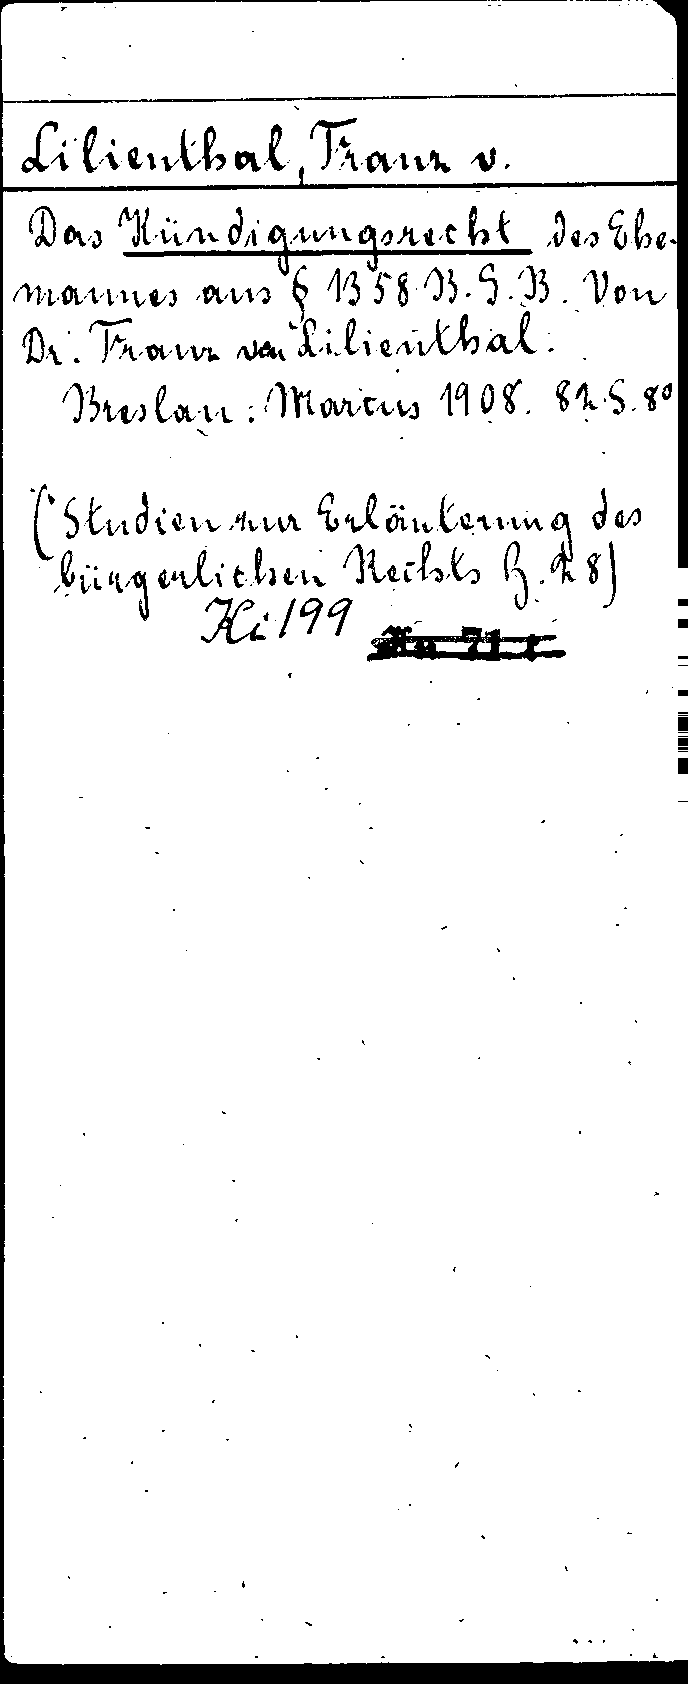 Lilienthal, Franz v.
Das Kündigungsrecht des Ehe-
mannes aus § 1358 B.G.B. Von
Dr. Franz von Lilienthal.
Breslau: Marcus 1908. 82 S. 8°
(Studien zur Erläuterung des
bürgerlichen Rechts H. 28)
Ki 199